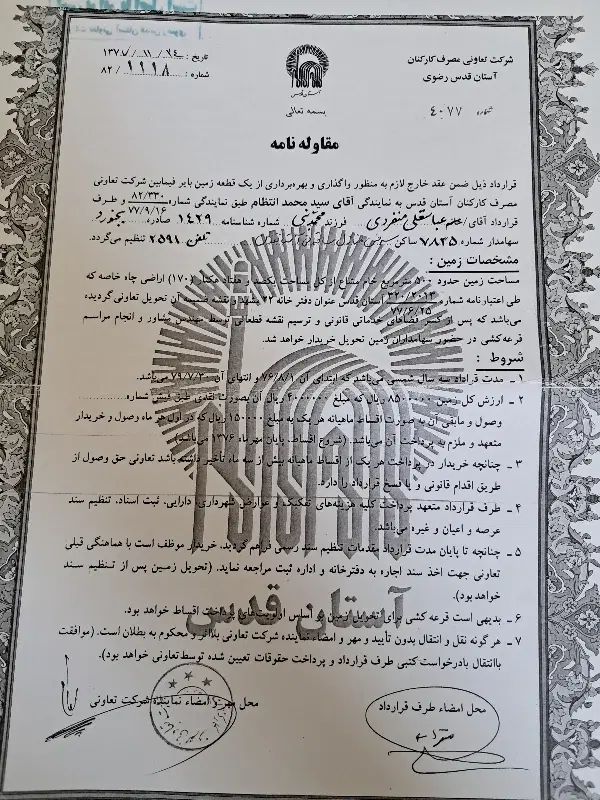 شرکت تعاونی مصرف کارکنان
آستان قدس رضوی
آستان قدس
تاریخ : ۱۳۷۷/۱۱/۲۴
شماره : ۸۲/۱۱۱۸
بسمه تعالی
شماره ۴۰۷۷
مقاوله نامه
قرارداد ذیل ضمن عقد خارج لازم به منظور واگذاری و بهره‌برداری از یک قطعه زمین بایر فیمابین شرکت تعاونی
مصرف کارکنان آستان قدس به نمایندگی آقای سید محمد انتظام طبق نمایندگی شماره ۸۲/۳۳۰ ۷۷/۹/۱۶ و طرف
قرارداد آقای/خانم عباسقلی منفردی فرزند شماره شناسنامه ۱۴۲۹ صادره بجنورد
سهامدار شماره ۷۸۲۵ ساکن تلفن ۲۵۹۱ تنظیم می‌گردد.
مشخصات زمین :
مساحت زمین حدود ۵۰۰ مترمربع خام مشاع از کل مساحت یکصد و هفتاد هکتار (۱۷۰) اراضی چاه خاصه که
طی اعتبارنامه شماره ۳۲۰/۲۰۱۳ ۷۷/۶/۲۵ آستان قدس عنوان دفتر خانه ۴۲ مشهد و نقشه ضمیمه آن تحویل تعاونی گردیده
می‌باشد که پس از کسر فضاهای خدماتی قانونی و ترسیم نقشه قطعاتی توسط مهندس مشاور و انجام مراسم
قرعه‌کشی در حضور سهامداران زمین تحویل خریدار خواهد شد.
شروط :
۱ ـ مدت قرارداد سه سال شمسی می‌باشد که ابتدای آن ۷۶/۸/۱ و انتهای آن ۷۹/۷/۳۰ می‌باشد.
۲ ـ ارزش کل زمین ۸۵۰۰۰۰۰ ریال که مبلغ ۴۰۰۰۰۰۰ ریال آن بصورت نقدی طی فیش شماره
وصول و مابقی آن به صورت اقساط ماهیانه هر یک به مبلغ ۱۵۰۰۰۰ ریال که در اول هر ماه وصول و خریدار
متعهد و ملزم به پرداخت آن می‌باشد. (شروع اقساط، پایان مهر ماه ۱۳۷۶ می‌باشد)
۳ ـ چنانچه خریدار در پرداخت هر یک از اقساط ماهیانه بیش از سه ماه تأخیر داشته باشد تعاونی حق وصول از
طریق اقدام قانونی و یا فسخ قرارداد را دارد.
۴ ـ طرف قرارداد متعهد پرداخت کلیه هزینه‌های تفکیک و عوارض شهرداری، دارایی، ثبت اسناد، تنظیم سند
عرصه و اعیان و غیره می‌باشد.
۵ ـ چنانچه تا پایان مدت قرارداد مقدمات تنظیم سند رسمی فراهم گردید، خریدار موظف است با هماهنگی قبلی
تعاونی جهت اخذ سند اجاره به دفترخانه و اداره ثبت مراجعه نماید. (تحویل زمین پس از تنظیم سند
خواهد بود).
۶ ـ بدیهی است قرعه کشی برای تحویل زمین بر اساس اولویت‌های پرداخت اقساط خواهد بود.
۷ ـ هر گونه نقل و انتقال بدون تأیید و مهر و امضاء نماینده شرکت تعاونی بلااثر و محکوم به بطلان است. (موافقت
باانتقال بادرخواست کتبی طرف قرارداد و پرداخت حقوقات تعیین شده توسط تعاونی خواهد بود).
آستان قدس
محل امضاء طرف قرارداد
محل مهر و امضاء نماینده شرکت تعاونی